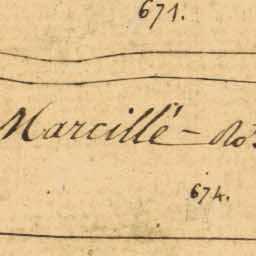 671.
Marcillé - Ro
674.